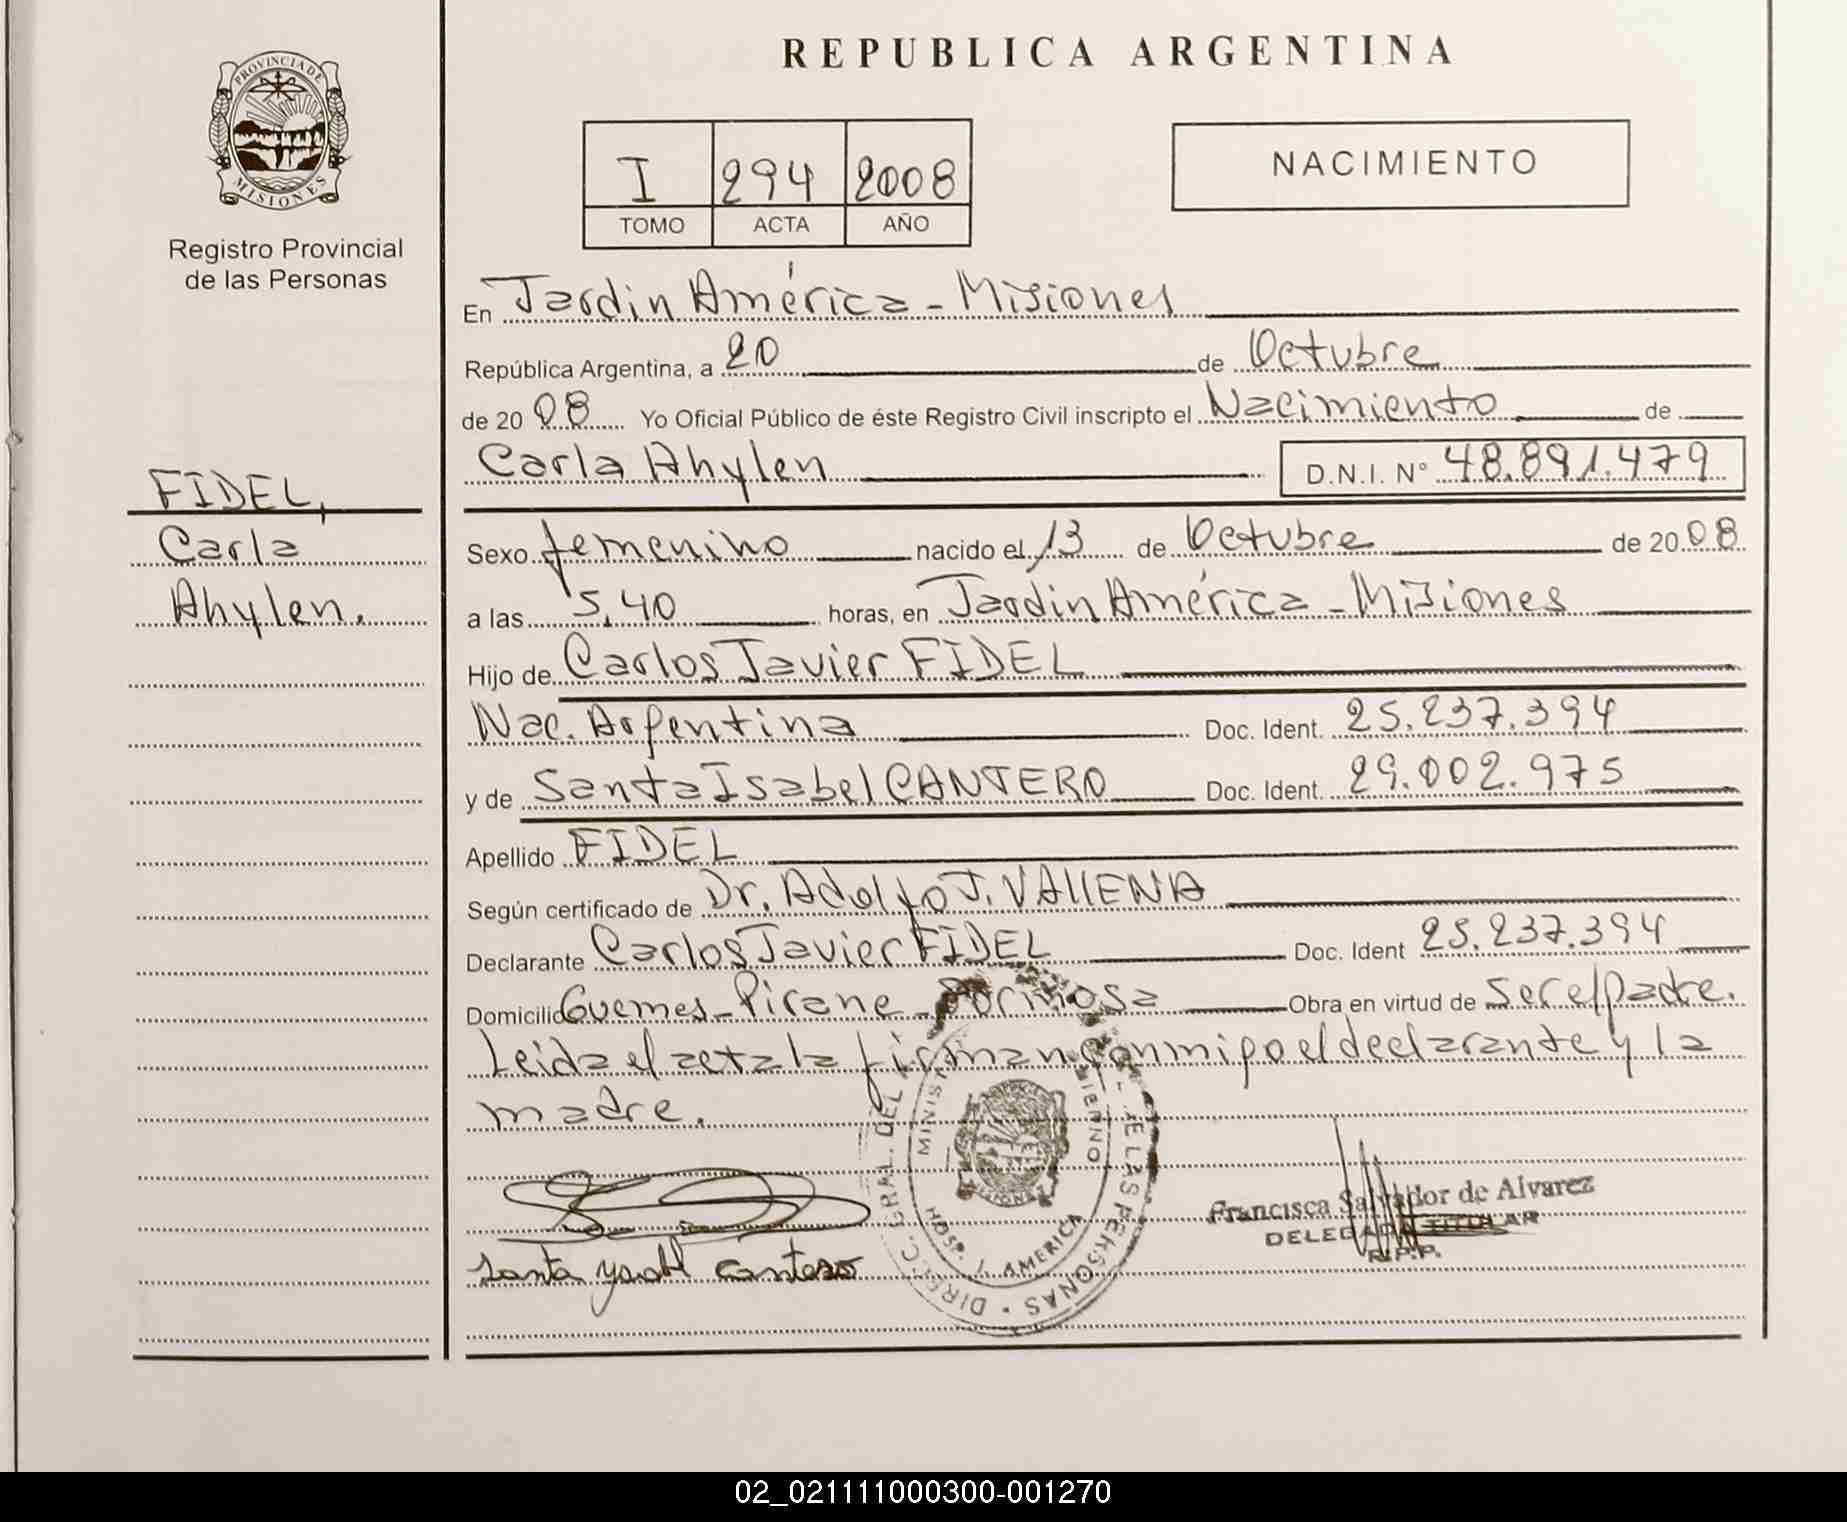 REPUBLICA ARGENTINA
PROVINCIA DE
MISIONES
Registro Provincial
de las Personas
I 294 2008
TOMO ACTA AÑO
NACIMIENTO
En Jardin América - Misiones
República Argentina, a 20 de Octubre
de 2008 Yo Oficial Público de éste Registro Civil inscripto el Nacimiento de
Carla Ahylen D.N.I. N° 48.891.479
FIDEL,
Carla
Ahylen.
Sexo femenino nacido el 13 de Octubre de 2008
a las 5,40 horas, en Jardin América - Misiones
Hijo de Carlos Javier FIDEL
Nac. Argentina Doc. Ident. 25.237.394
y de Santa Isabel CANTERO Doc. Ident. 29.002.975
Apellido FIDEL
Según certificado de Dr. Adolfo J. VALLENA
Declarante Carlos Javier FIDEL Doc. Ident 25.237.394
Domicilio Guemes - Pirane - Formosa Obra en virtud de ser el padre.
Leida el acta la firman conmigo el declarante y la
madre.
Santa Ysabel Cantero
DIREC. GRAL. DEL DE LAS PERSONAS
HOSP. J. AMERICA
Francisca Salvador de Alvarez
DELEGADA TITULAR
R.P.P.
02_021111000300-001270